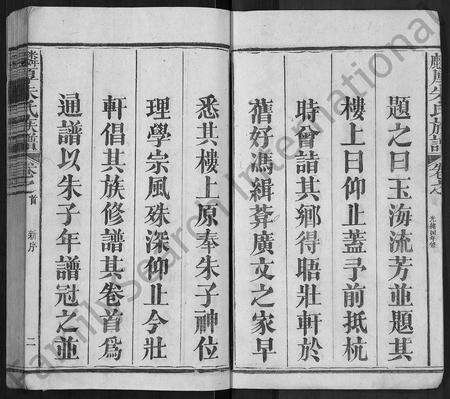 麟厚朱氏族譜
卷之首
光緒四年套
題之曰玉海流芳並題其
樓上曰仰止蓋予前抵杭
時曾詰其鄉得晤壯軒於
舊好馮緝莽廣文之家早
悉其樓上原奉朱子神位
理學宗風殊深仰止今壯
軒倡其族修譜其卷首爲
通譜以朱子年譜冠之並
麟厚朱氏族譜
卷之首
新序
二
FamilySearch International